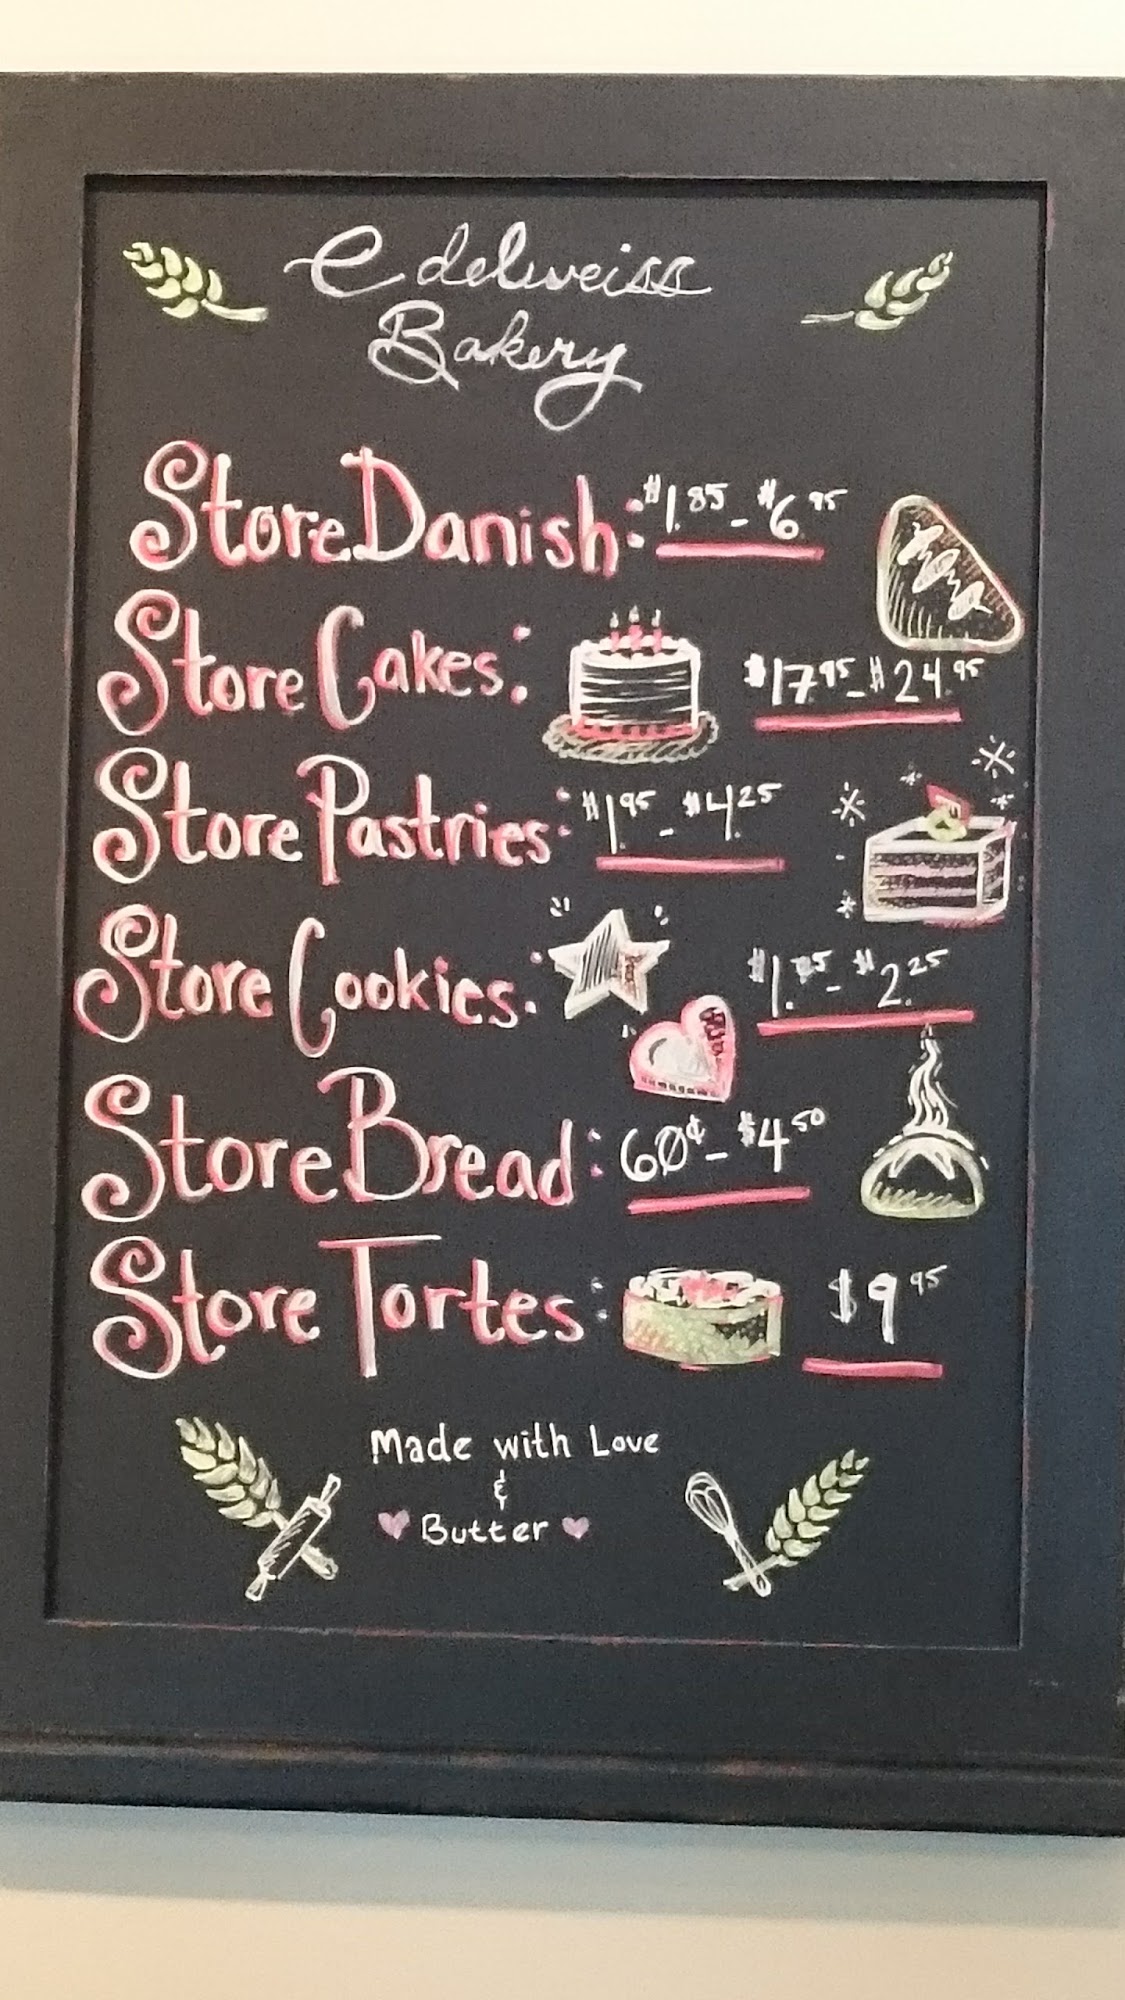 Edelweiss
Bakery
Store Danish: $1.85 - $6.95
Store Cakes: $17.95 - $24.95
Store Pastries: $1.95 - $4.25
Store Cookies: - $2.25
Store Bread: 60¢ - $4.50
Store Tortes: $9.95
Made with Love
&
Butter